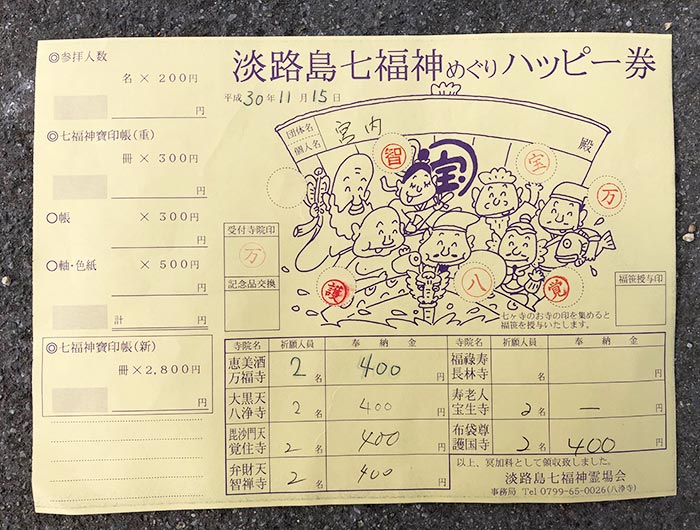 淡路島七福神めぐりハッピー券
平成30年11月15日
団体名
個人名
宮内
殿
◎参拝人数
名 × 200円
円
◎七福神寳印帳(重)
冊 × 300円
円
〇帳 × 300円
円
〇軸・色紙 × 500円
円
計 円
◎七福神寳印帳(新)
冊×2,800円
円
智
宝
宝
万
護
八
覚
受付寺院印
万
記念品交換
福笹授与印
七ヶ寺のお寺の印を集めると
福笹を授与いたします。
寺院名 祈願人員 奉納金
恵美酒
万福寺 2名 400円
大黒天
八浄寺 2名 400円
毘沙門天
覚住寺 2名 400円
弁財天
智禅寺 2名 400円
寺院名 祈願人員 奉納金
福禄寿
長林寺 名 円
寿老人
宝生寺 2名 ー 円
布袋尊
護国寺 2名 400円
以上、冥加料として領収致しました。
淡路島七福神霊場会
事務局 Tel 0799-65-0026(八浄寺)